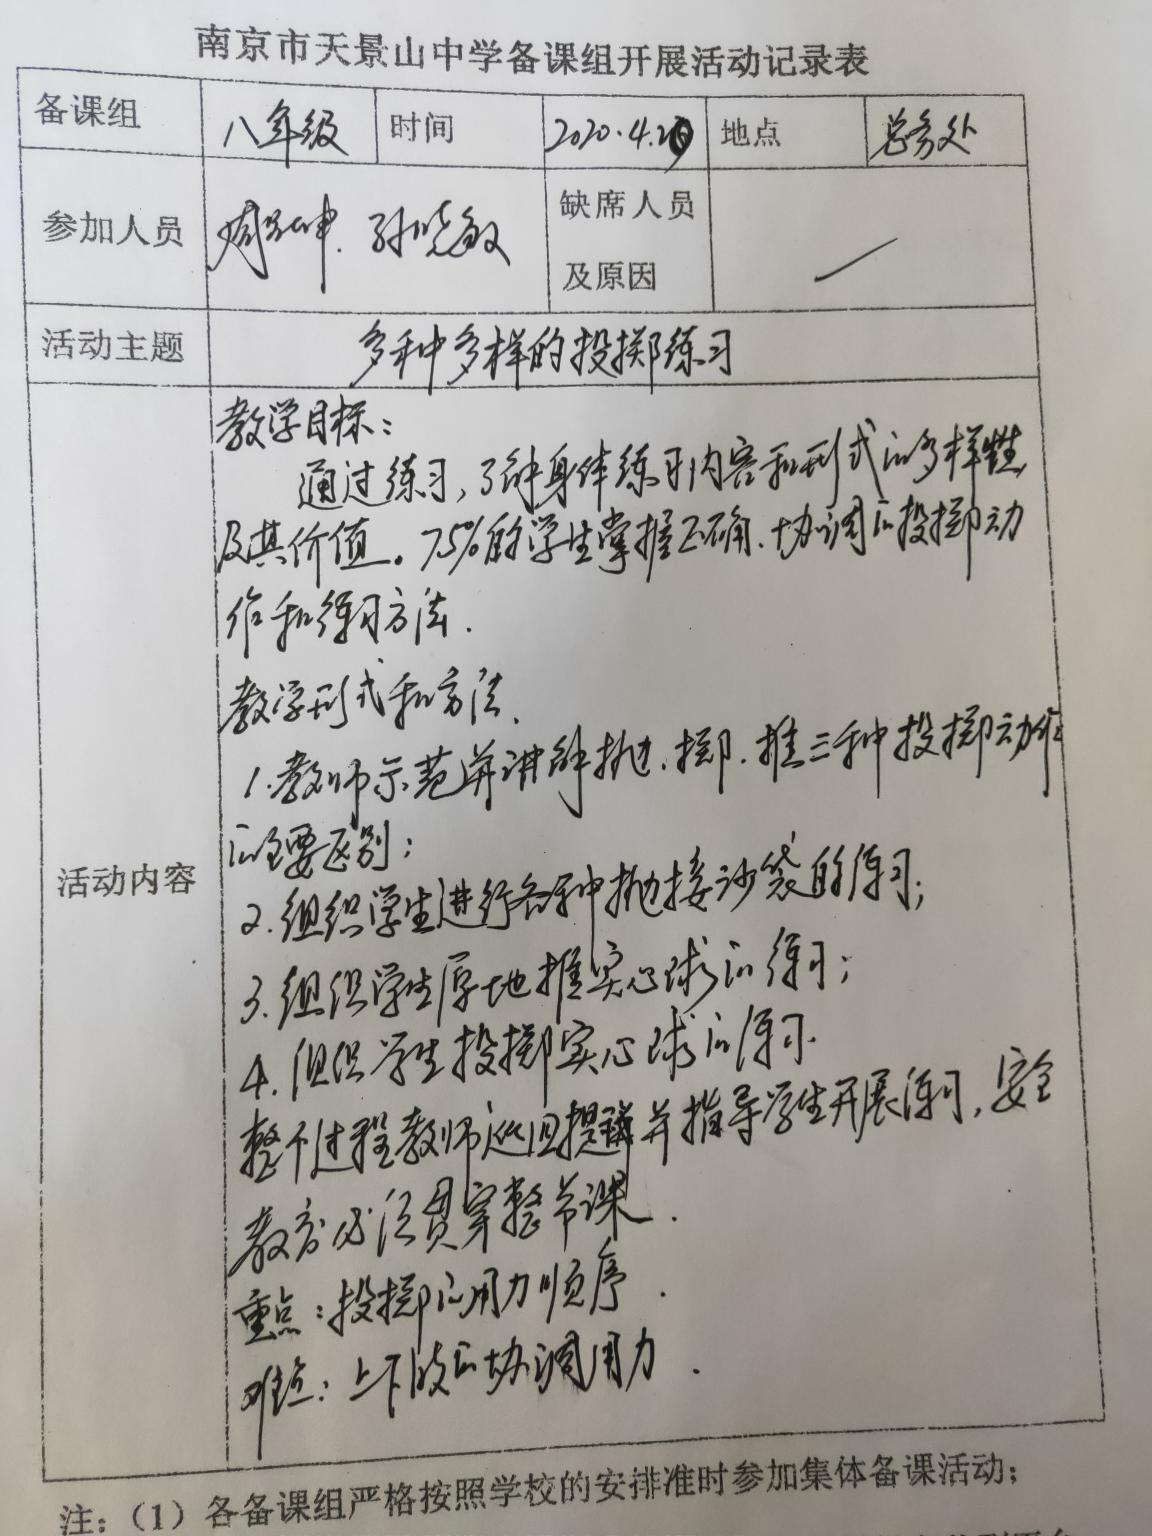 南京市天景山中学备课组开展活动记录表
备课组 八年级 时间 2020.4. 地点 总务处
参加人员 孙晓敏 缺席人员
及原因
活动主题 多种多样的投掷练习
教学目标：
通过练习，了解身体练习内容和形式的多样性
及其价值。75%的学生掌握正确、协调的投掷动
作和练习方法.
教学形式和方法.
1.教师示范并讲解抛、掷、推三种投掷动作
的主要区别；
活动内容
2.组织学生进行各种抛接沙袋的练习；
3.组织学生原地推实心球的练习；
4.组织学生投掷实心球的练习.
整个过程教师巡回提醒并指导学生开展练习，安全
教育必须贯穿整节课.
重点：投掷的用力顺序.
难点：上下肢的协调用力.
注：（1）各备课组严格按照学校的安排准时参加集体备课活动；